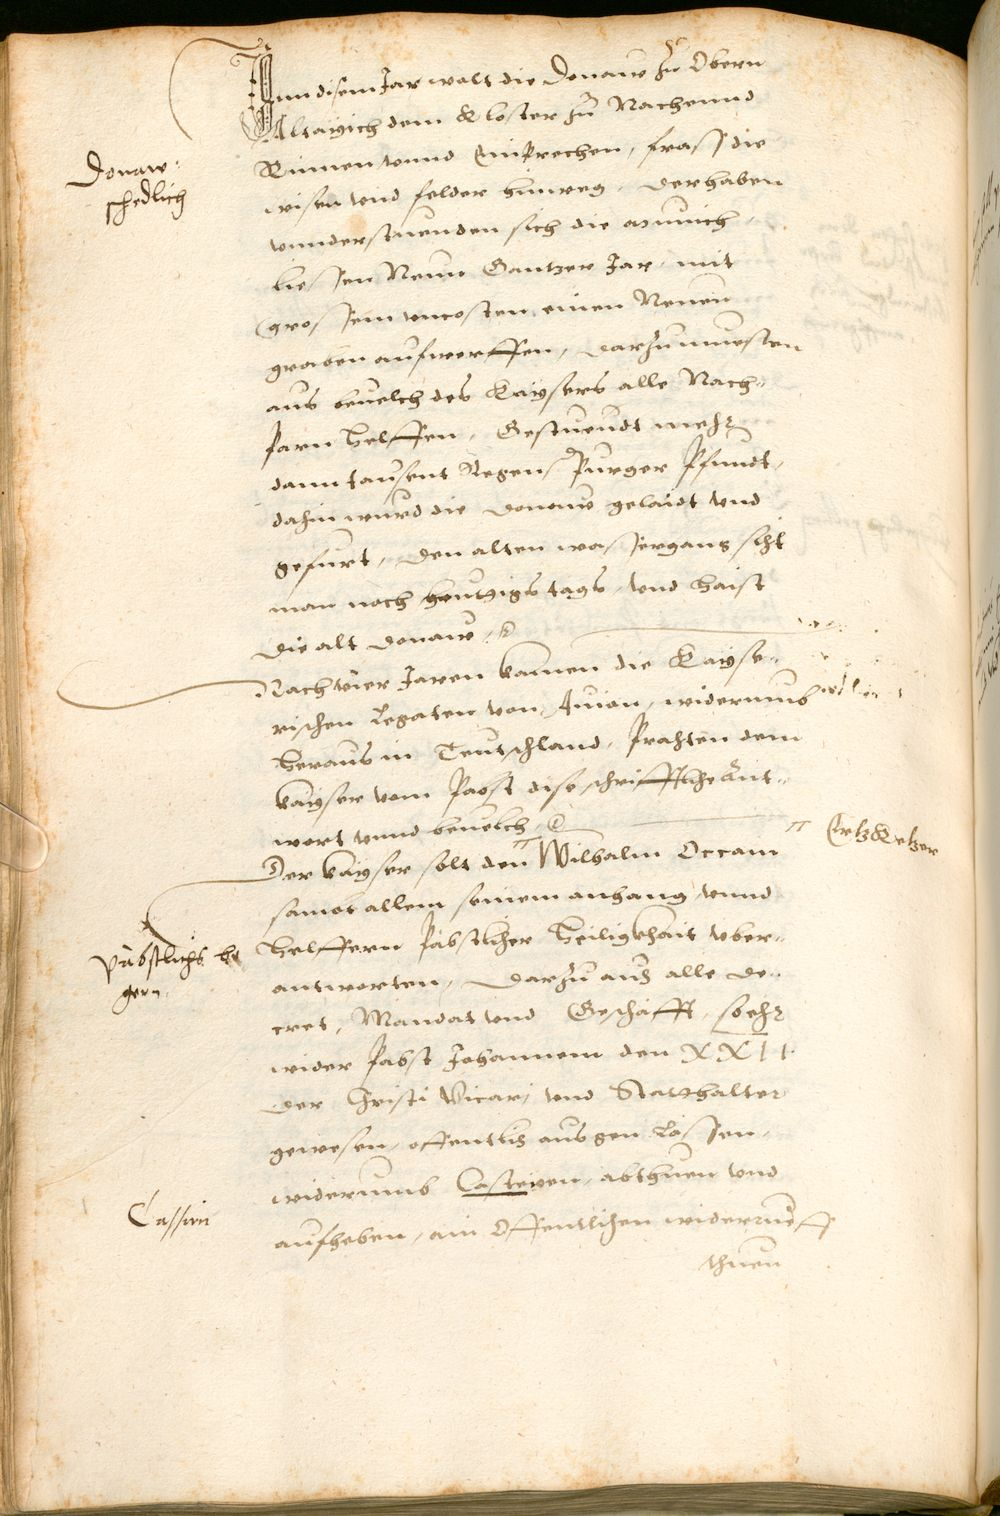 Inn disem Jar wolt die Donaw zu Obern
Altaÿich dem Closter zu Nachennd
Rinnen vnnd Einprechen, frass die
wisen vnd felder hinweg, Derhaben
vnnderstuenden sich die Münich
liessen Neun Gantzer Jar, mit
grossem vncosten einen Neuen
graben aufwerffen, Darzu muesten
aus beuelch des Kaÿsers alle Nach-
parn helffen, Gestuendt mehr
dann tausent Regenspurger Pfundt,
dahin wurd die Donaw gelaidt vnd
gefürt, Den alten wassergang siht
man noch heutzigs tags, vnd haist
die alt Donaw.
Donaw
schedlich
Nach vier Jaren kamen die Kaÿse-
rischen Legaten von Auion, widerumb
heraus in Teutschland, Prachten dem
kaÿser vom Pabst dise schrifftliche Ant-
wort vnnd beuelch.
Der kaÿser solt den Wilhalm Occam
ErtzKetzer
sambt allem seinem anhang vnnd
helffern Päbstlicher heiligkhait vber-
antworten, Darzu auch alle De-
cret, Mandat vnd Geschäfft, so ehr
wider Pabst Johannem den XXII.
Der Christi Vicari vnd Statthalter
gewesen, offentlich ausgen Lassen,
widerumb Castieren, abthuen vnd
aufheben, ain Offentlichen widerrueff
thuen
Päbstlichs be
gern.
Cassirn